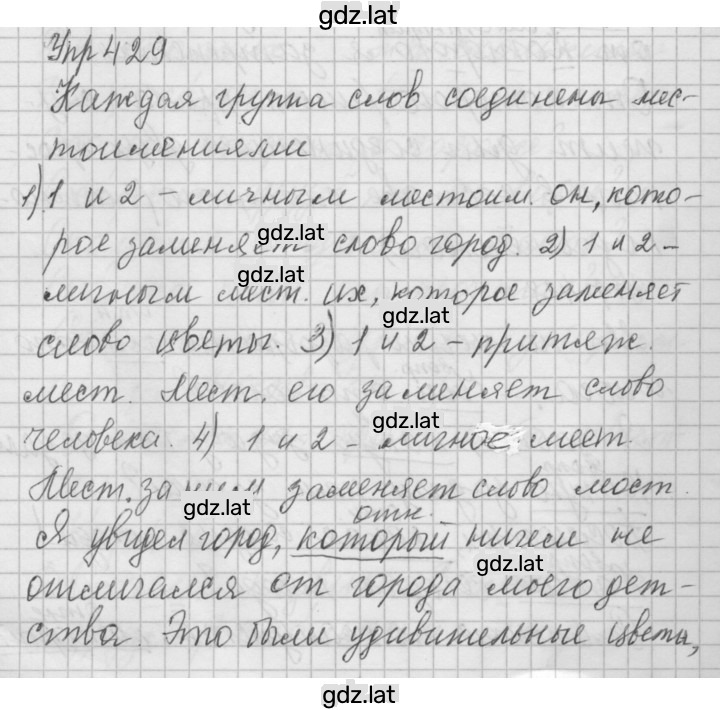 gdz.lat
Упр 429
Каждая группа слов соединены мес-
тоимениями
1) 1 и 2 – личным местоим. он, кото-
рое заменяет слово город. 2) 1 и 2 –
gdz.lat
gdz.lat
личным мест. их, которое заменяет
слово цветы. 3) 1 и 2 – притяж.
gdz.lat
мест. Мест. его заменяет слово
человека. 4) 1 и 2 – личное мест.
gdz.lat
Мест. за заменяет слово мост.
gdz.lat
отн.
Я увидел город, который ничем не
gdz.lat
отличался от города моего дет-
ства. Это были удивительные цветы,
gdz.lat